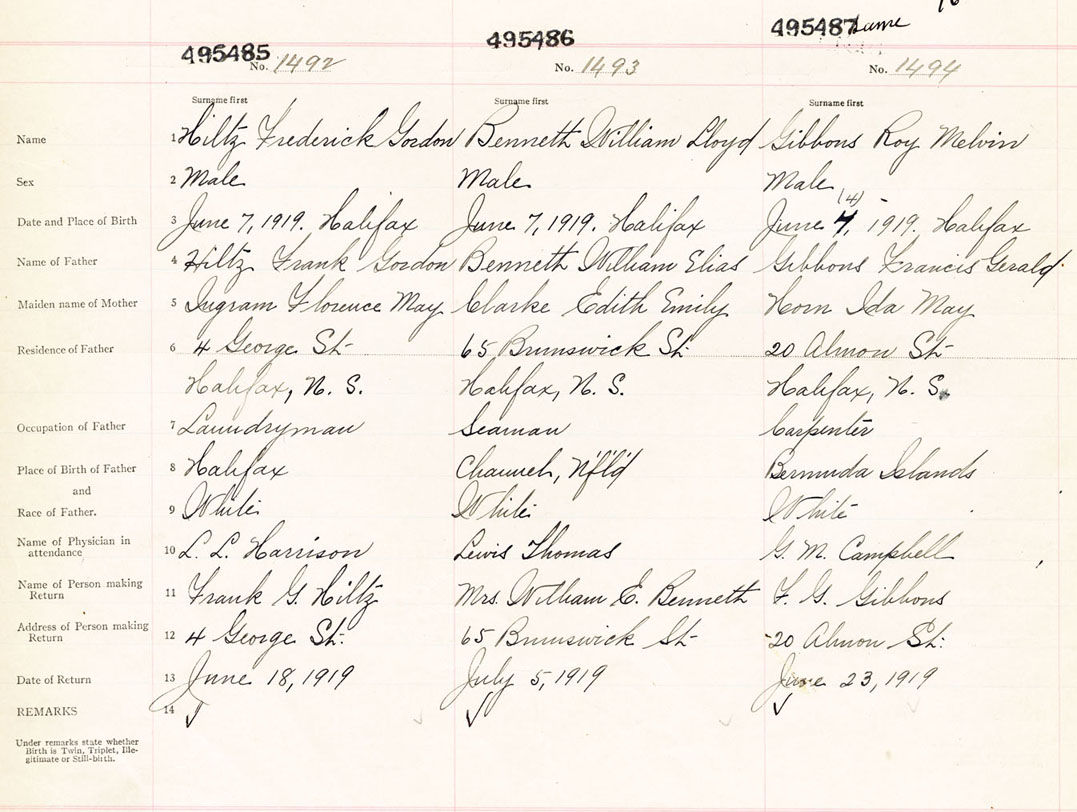 495485 495486 495487 Same
No. 1492 No. 1493 No. 1494
Surname first Surname first Surname first
Name 1 Hiltz Frederick Gordon Bennett William Lloyd Gibbons Roy Melvin
Sex 2 Male Male Male
(4)
Date and Place of Birth 3 June 7, 1919. Halifax June 7, 1919. Halifax June 7, 1919. Halifax
Name of Father 4 Hiltz Frank Gordon Bennett William Elias Gibbons Francis Gerald
Maiden name of Mother 5 Ingram Florence May Clarke Edith Emily Horn Ida May
Residence of Father 6 4 George St. 65 Brunswick St. 20 Almon St.
Halifax, N. S. Halifax, N. S. Halifax, N. S.
Occupation of Father 7 Laundryman Seaman Carpenter
Place of Birth of Father 8 Halifax Channel, N'f'l'd Bermuda Islands
and
Race of Father. 9 White White White
Name of Physician in
attendance 10 L. L. Harrison Lewis Thomas G. M. Campbell
Name of Person making
Return 11 Frank G. Hiltz Mrs. William E. Bennett F. G. Gibbons
Address of Person making
Return 12 4 George St. 65 Brunswick St. 20 Almon St.
Date of Return 13 June 18, 1919 July 5, 1919 June 23, 1919
REMARKS 14
Under remarks state whether
Birth is Twin, Triplet, Ille-
gitimate or Still-birth.